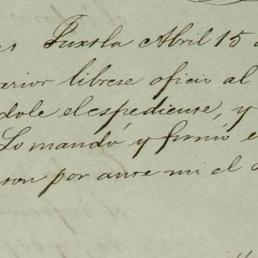 es Tuxtla Abril 15 d
erior librese oficio al
dole el espediente, y
Lo mandó y firmó e
son por ante mi el